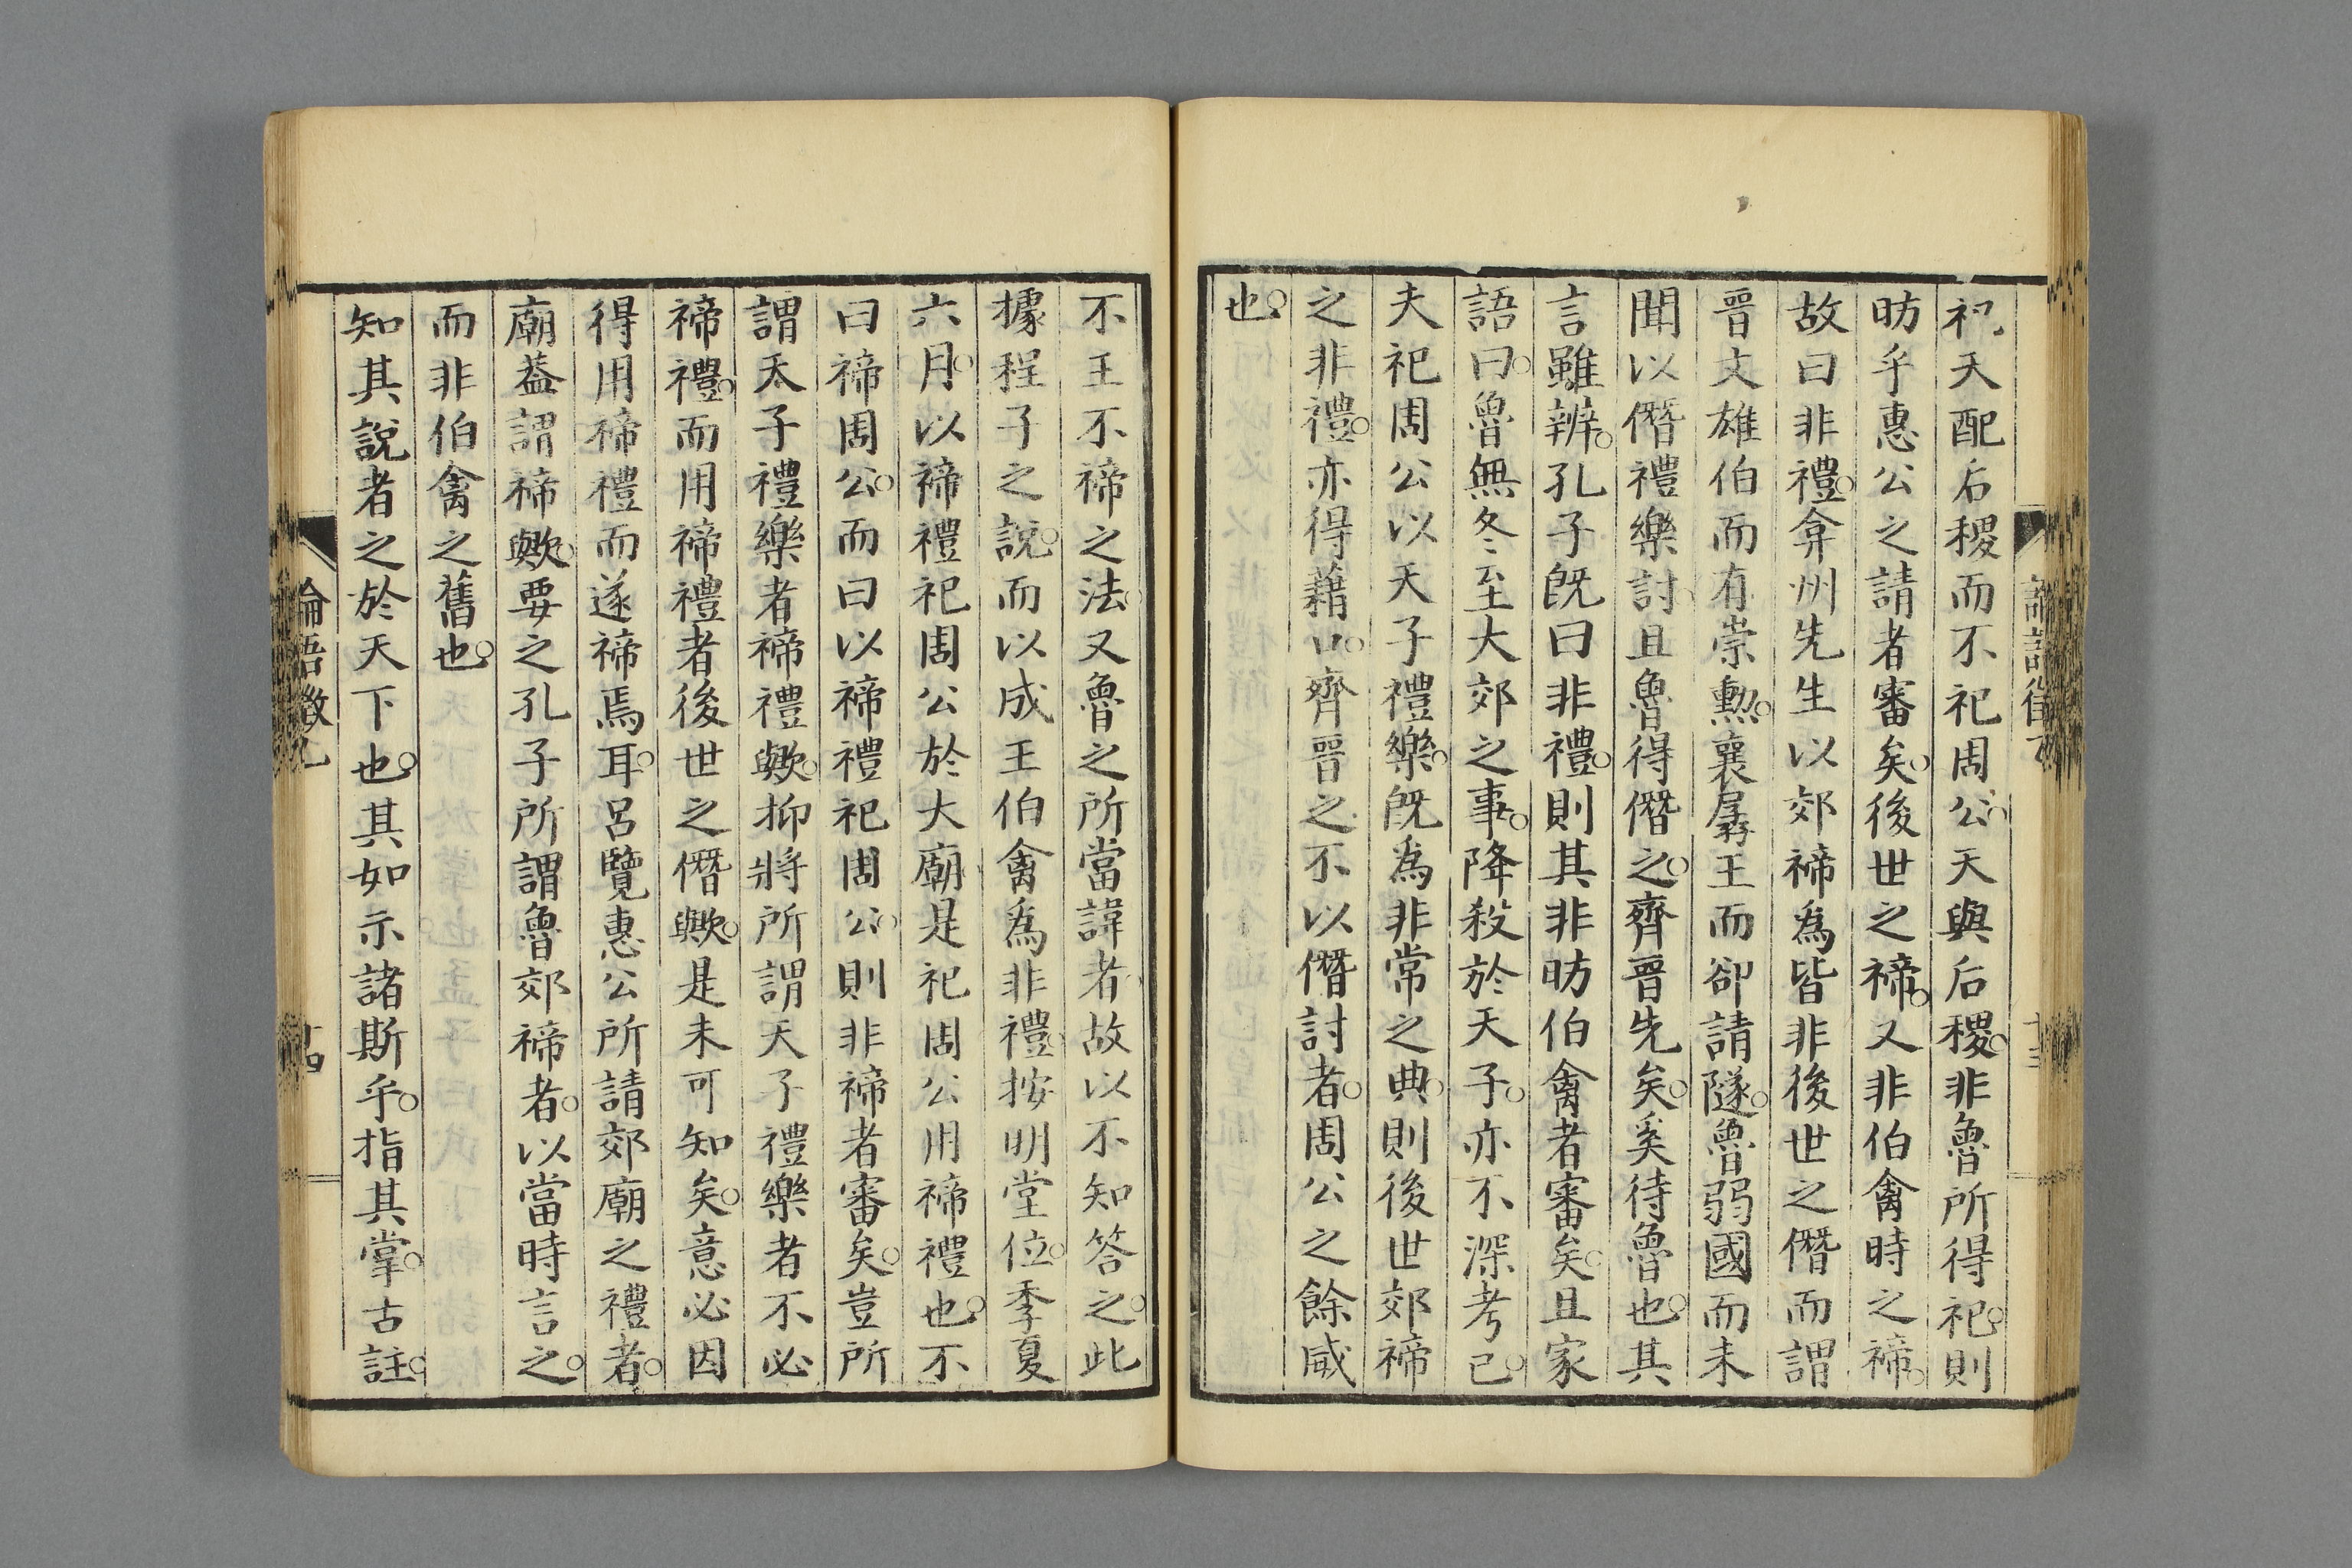 祀天配后稷而不祀周公天與后稷非魯所得祀則
昉乎惠公之請者審矣後世之禘又非伯禽時之禘
故曰非禮弇州先生以郊禘為皆非後世之僭而謂
晋文雄伯而有崇勲襄孱王而卻請隧魯弱國而未
聞以僭禮樂討且魯得僭之齊晋先矣奚待魯也其
言雖辨孔子既曰非禮則其非昉伯禽者審矣且家
語曰魯無冬至大郊之事降殺於天子亦不深考已
夫祀周公以天子禮樂既為非常之典則後世郊禘
之非禮亦得藉口齊晋之不以僭討者周公之餘威
也
不王不禘之法又魯之所當諱者故以不知答之此
據程子之說而以成王伯禽為非禮按明堂位季夏
六月以禘禮祀周公於大廟是祀周公用禘禮也不
曰禘周公而曰以禘禮祀周公則非禘者審矣豈所
謂天子禮樂者禘禮歟抑將所謂天子禮樂者不必
禘禮而用禘禮者後世之僭歟是未可知矣意必因
得用禘禮而遂禘焉耳呂覽惠公所請郊廟之禮者
廟葢謂禘歟要之孔子所謂魯郊禘者以當時言之
而非伯禽之舊也
知其說者之於天下也其如示諸斯乎指其掌古註
論語徵
十四